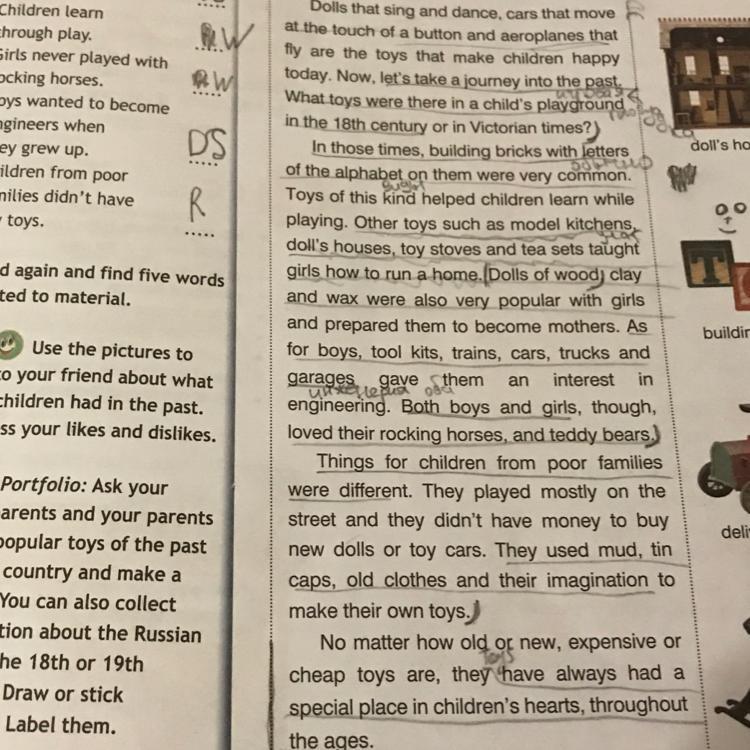 Children learn
through play.
RW
Girls never played with
rocking horses.
RW
boys wanted to become
engineers when
they grew up.
DS
children from poor
families didn't have
toys.
R
again and find five words
to material.
Use the pictures to
to your friend about what
children had in the past.
your likes and dislikes.
Portfolio: Ask your
parents and your parents
popular toys of the past
country and make a
You can also collect
about the Russian
the 18th or 19th
Draw or stick
Label them.
Dolls that sing and dance, cars that move
at the touch of a button and aeroplanes that
fly are the toys that make children happy
today. Now, let's take a journey into the past.
What toys were there in a child's playground
in the 18th century or in Victorian times?
In those times, building bricks with letters
of the alphabet on them were very common.
Toys of this kind helped children learn while
playing. Other toys such as model kitchens,
doll's houses, toy stoves and tea sets taught
girls how to run a home. Dolls of wood, clay
and wax were also very popular with girls
and prepared them to become mothers. As
for boys, tool kits, trains, cars, trucks and
garages gave them an interest in
engineering. Both boys and girls, though,
loved their rocking horses, and teddy bears.
Things for children from poor families
were different. They played mostly on the
street and they didn't have money to buy
new dolls or toy cars. They used mud, tin
caps, old clothes and their imagination to
make their own toys.
No matter how old or new, expensive or
toys
cheap toys are, they have always had a
special place in children's hearts, throughout
the ages.
doll's
T